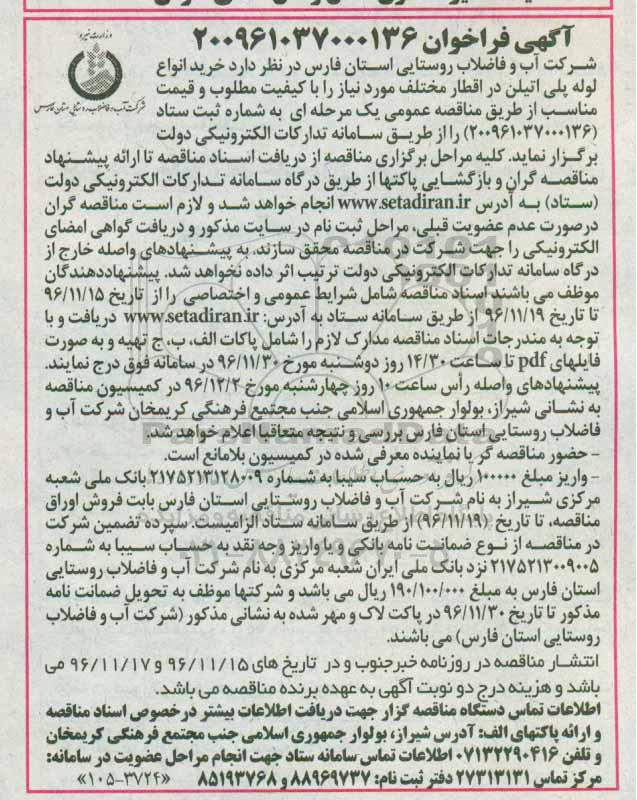 آگهی فراخوان ۲۰۰۹۶۱۰۳۷۰۰۰۱۳۶
وزارت نیرو
شرکت آب و فاضلاب روستایی استان فارس
شرکت آب و فاضلاب روستایی استان فارس در نظر دارد خرید انواع
لوله پلی اتیلن در اقطار مختلف مورد نیاز را با کیفیت مطلوب و قیمت
مناسب از طریق مناقصه عمومی یک مرحله ای به شماره ثبت ستاد
(۲۰۰۹۶۱۰۳۷۰۰۰۱۳۶) را از طریق سامانه تدارکات الکترونیکی دولت
برگزار نماید. کلیه مراحل برگزاری مناقصه از دریافت اسناد مناقصه تا ارائه پیشنهاد
مناقصه گران و بازگشایی پاکتها از طریق درگاه سامانه تدارکات الکترونیکی دولت
(ستاد) به آدرس www.setadiran.ir انجام خواهد شد و لازم است مناقصه گران
درصورت عدم عضویت قبلی، مراحل ثبت نام در سایت مذکور و دریافت گواهی امضای
الکترونیکی را جهت شرکت در مناقصه محقق سازند. به پیشنهادهای واصله خارج از
درگاه سامانه تدارکات الکترونیکی دولت ترتیب اثر داده نخواهد شد. پیشنهاددهندگان
موظف می باشند اسناد مناقصه شامل شرایط عمومی و اختصاصی را از تاریخ ۹۶/۱۱/۱۵
تا تاریخ ۹۶/۱۱/۱۹ از طریق سامانه ستاد به آدرس: www.setadiran.ir دریافت و با
توجه به مندرجات اسناد مناقصه مدارک لازم را شامل پاکات الف، ب، ج تهیه و به صورت
فایلهای pdf تا ساعت ۱۴/۳۰ روز دوشنبه مورخ ۹۶/۱۱/۳۰ در سامانه فوق درج نمایند.
پیشنهادهای واصله رأس ساعت ۱۰ روز چهارشنبه مورخ ۹۶/۱۲/۲ در کمیسیون مناقصه
به نشانی شیراز، بولوار جمهوری اسلامی جنب مجتمع فرهنگی کریمخان شرکت آب و
فاضلاب روستایی استان فارس بررسی و نتیجه متعاقبا اعلام خواهد شد.
- حضور مناقصه گر یا نماینده معرفی شده در کمیسیون بلامانع است.
- واریز مبلغ ۱۰۰۰۰۰ ریال به حساب سیبا به شماره ۲۱۷۵۲۱۳۱۲۸۰۰۹ بانک ملی شعبه
مرکزی شیراز به نام شرکت آب و فاضلاب روستایی استان فارس بابت فروش اوراق
مناقصه، تا تاریخ (۹۶/۱۱/۱۹) از طریق سامانه ستاد الزامیست. سپرده تضمین شرکت
در مناقصه از نوع ضمانت نامه بانکی و یا واریز وجه نقد به حساب سیبا به شماره
۲۱۷۵۲۱۳۰۰۹۰۰۵ نزد بانک ملی ایران شعبه مرکزی به نام شرکت آب و فاضلاب روستایی
استان فارس به مبلغ ۱۹۰/۱۰۰/۰۰۰ ریال می باشد و شرکتها موظف به تحویل ضمانت نامه
مذکور تا تاریخ ۹۶/۱۱/۳۰ در پاکت لاک و مهر شده به نشانی مذکور (شرکت آب و فاضلاب
روستایی استان فارس) می باشند.
انتشار مناقصه در روزنامه خبرجنوب و در تاریخ های ۹۶/۱۱/۱۵ و ۹۶/۱۱/۱۷ می
باشد و هزینه درج دو نوبت آگهی به عهده برنده مناقصه می باشد.
اطلاعات تماس دستگاه مناقصه گزار جهت دریافت اطلاعات بیشتر در خصوص اسناد مناقصه
و ارائه پاکتهای الف: آدرس شیراز، بولوار جمهوری اسلامی جنب مجتمع فرهنگی کریمخان
و تلفن ۰۷۱۳۲۲۹۰۴۱۶ اطلاعات تماس سامانه ستاد جهت انجام مراحل عضویت در سامانه:
مرکز تماس ۲۷۳۱۳۱۳۱ دفتر ثبت نام: ۸۸۹۶۹۷۳۷ و ۸۵۱۹۳۷۶۸ «۳۷۲۴-۱۰۵»